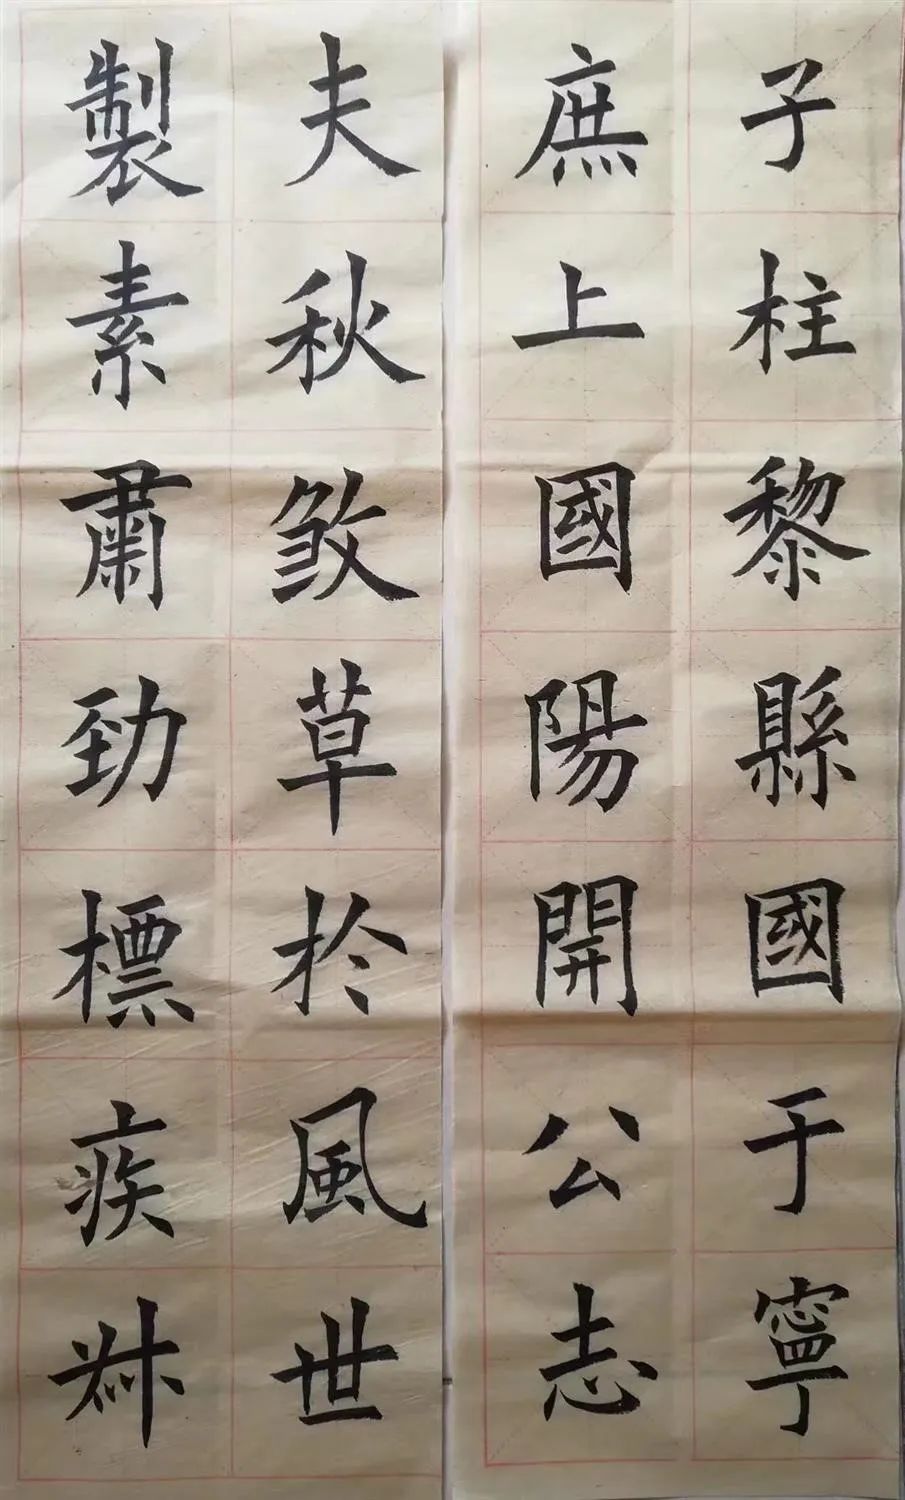 子柱黎縣國于寧
庶上國陽開公志
夫秋草扵風世
製素肅勁標疾